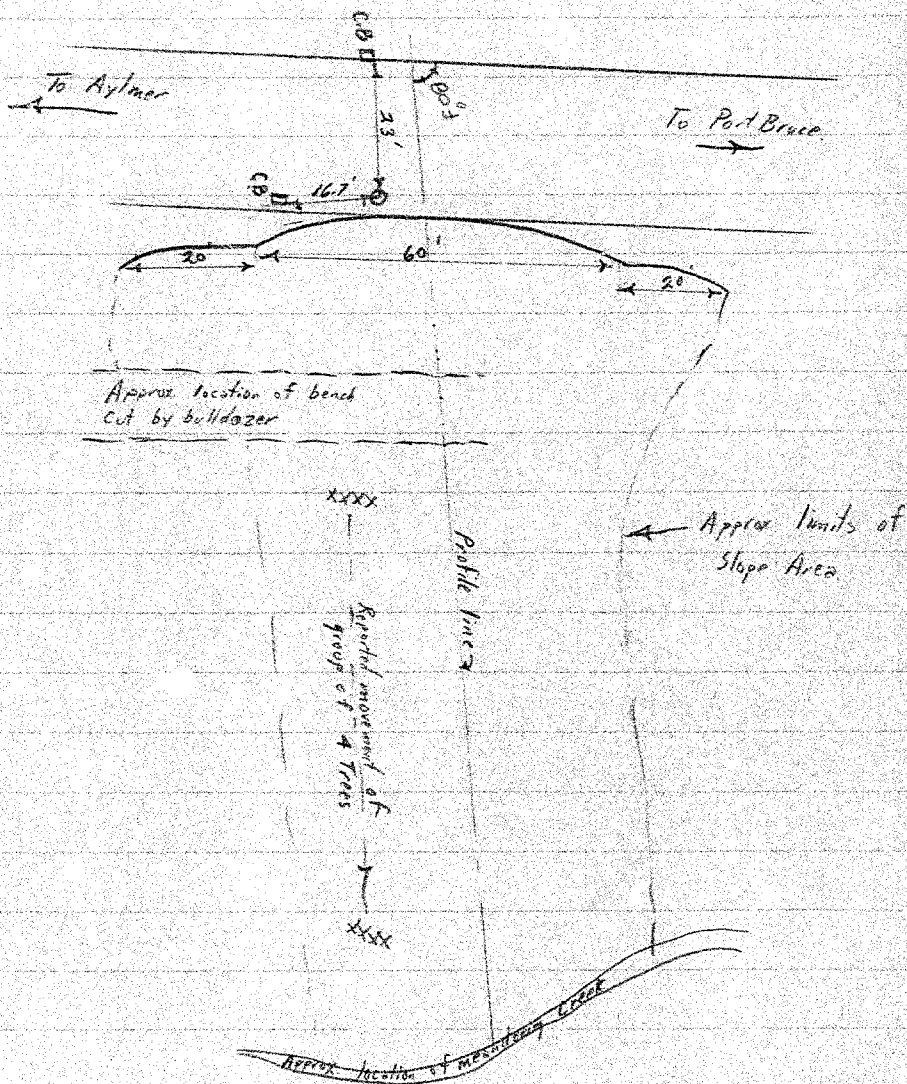 C.B
To Aylmer
To Port Bruce
23'
C.B
16.7'
20'
60'
20'
Approx location of bench
cut by bulldozer
xxxx
Approx limits of
Slope Area
Profile line
Reported movement of
group of 4 Trees
xxxx
Approx location of meandering Creek